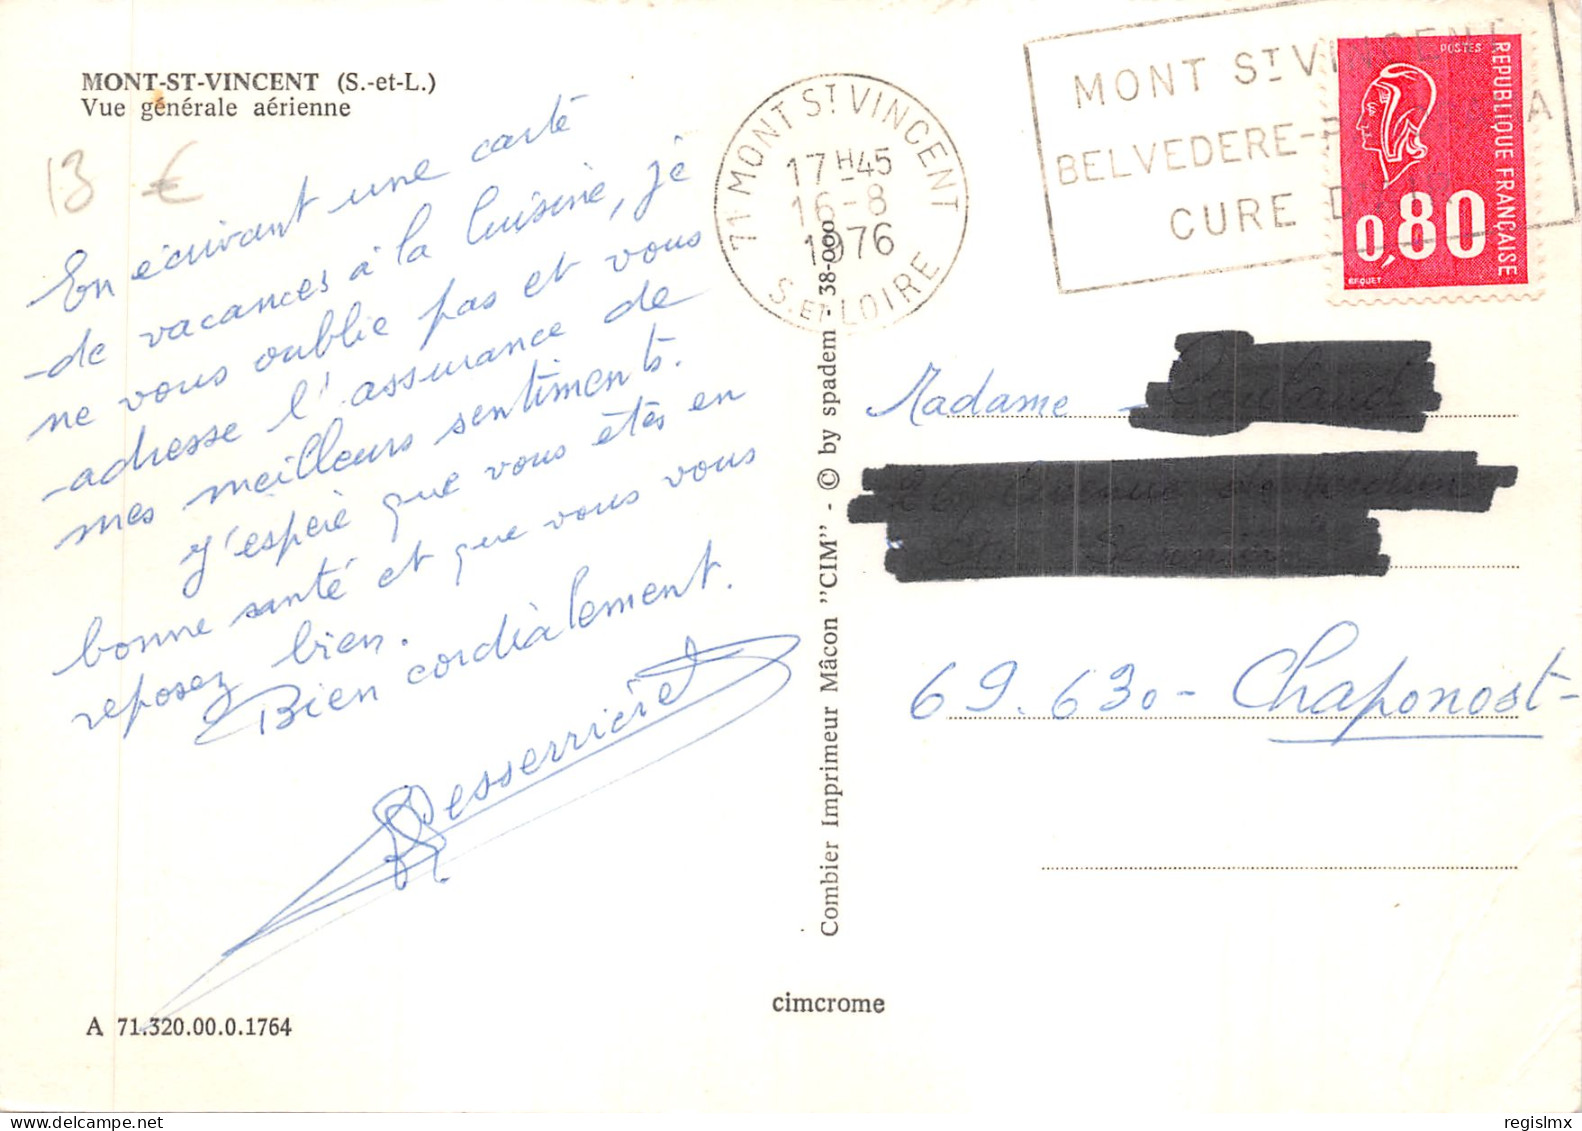 MONT-ST-VINCENT (S.-et-L.)
Vue générale aérienne
13 €
En écrivant une carte
-de vacances à la Cuisine, je
ne vous oublie pas et vous
-adresse l'assurance de
mes meilleurs sentiments.
J'espère que vous êtes en
bonne santé et que vous vous
reposez bien.
Bien cordialement.
A 71.320.00.0.1764
Combier Imprimeur Mâcon "CIM" - © by spadem - 38-000
cimcrome
71 MONT ST VINCENT
17H45
16-8
1976
S. ET LOIRE
MONT ST VINCENT
BELVEDERE-
CURE
POSTES
REPUBLIQUE FRANÇAISE
0,80
BEQUET
Madame
69.630 - Chaponost-
regislmx